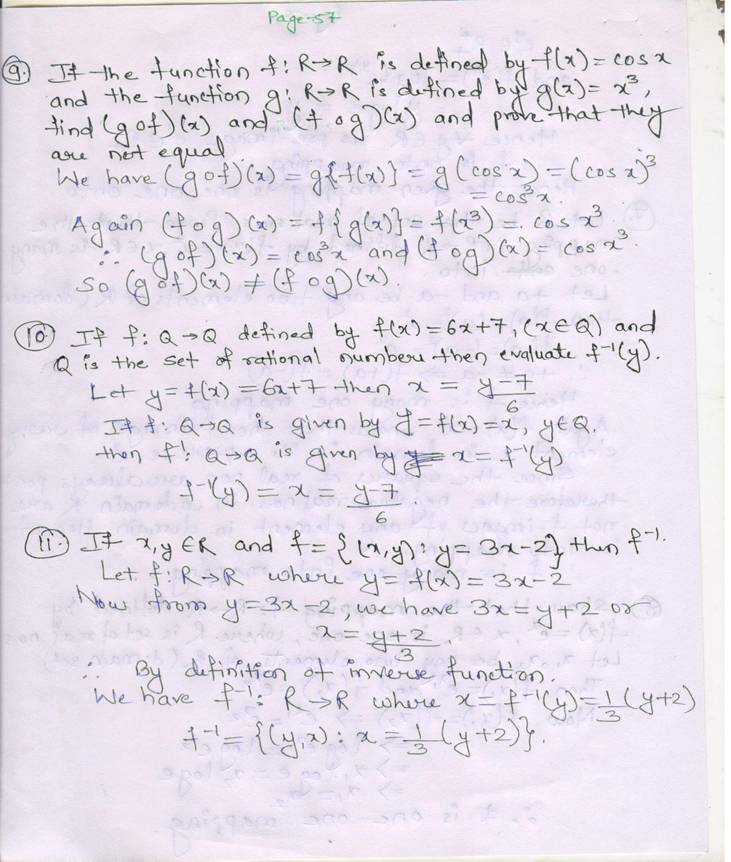 Page-57
9. If the function f: R→R is defined by f(x) = cos x
and the function g: R→R is defined by g(x) = x³,
find (gof)(x) and (fog)(x) and prove that they
are not equal
We have (gof)(x) = g{f(x)} = g(cos x) = (cos x)³
= cos³x.
Again (fog)(x) = f{g(x)} = f(x³) = cos x³
∴ (gof)(x) = cos³x and (fog)(x) = cos x³.
So (gof)(x) ≠ (fog)(x).
10. If f: Q→Q defined by f(x) = 6x+7, (x∈Q) and
Q is the set of rational numbers then evaluate f⁻¹(y).
Let y = f(x) = 6x+7 then x = (y-7)/6
If f: Q→Q is given by y = f(x) = x, y∈Q.
then f⁻¹: Q→Q is given by x = f⁻¹(y)
f⁻¹(y) = x = (y-7)/6.
11. If x,y ∈R and f = {(x,y): y = 3x-2} then f⁻¹.
Let f: R→R where y = f(x) = 3x-2
Now from y = 3x-2, we have 3x = y+2 or
x = (y+2)/3.
∴ By definition of inverse function.
We have f⁻¹: R→R where x = f⁻¹(y) = 1/3 (y+2)
f⁻¹ = {(y,x): x = 1/3 (y+2)}.